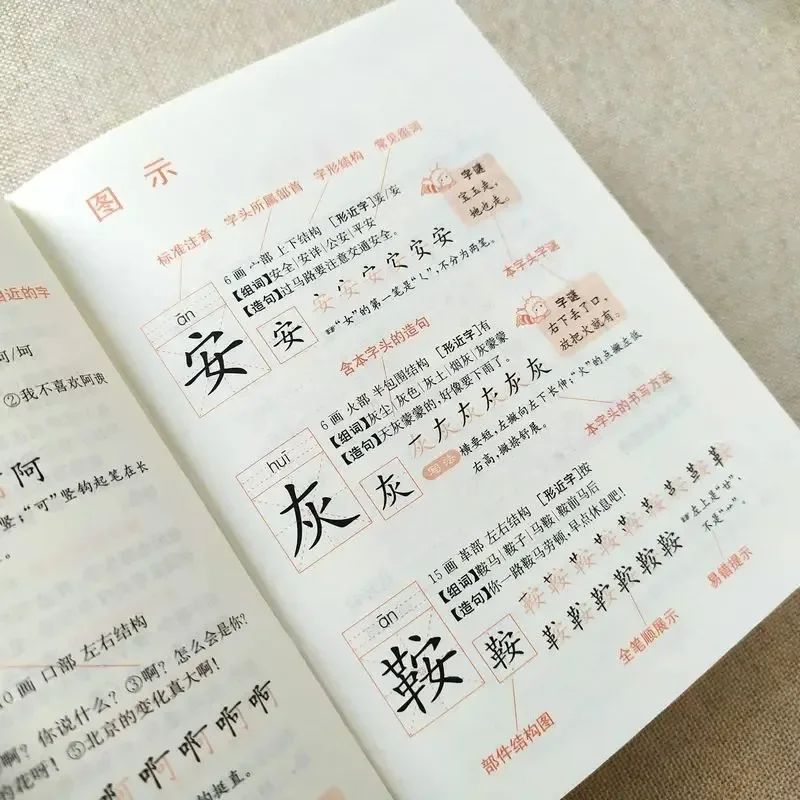 图示
标准注音
字头所属部首
字形结构
常见组词
字谜
宝玉走，
她也走。
本字头字谜
ān
安
安
6画 宀部 上下结构 【形近字】妥/安
【组词】安全|安详|公安|平安
【造句】过马路要注意交通安全。
安安安安安安
“女”的第一笔是“ㄑ”，不分为两笔。
含本字头的造句
字谜
右下丢了口，
放把火就有。
huī
灰
灰
6画 火部 半包围结构 【形近字】有
【组词】灰尘|灰色|灰土|烟灰|灰蒙蒙
【造句】天灰蒙蒙的，好像要下雨了。
灰灰灰灰灰灰
写法 横要短，左撇向左下长伸；“火”的点撇左低
右高，撇捺舒展。
本字头的书写方法
ān
鞍
鞍
15画 革部 左右结构 【形近字】按
【组词】鞍马|鞍子|马鞍|鞍前马后
【造句】你一路鞍马劳顿，早点休息吧！
鞍鞍鞍鞍鞍鞍鞍鞍鞍
鞍鞍鞍鞍鞍鞍
左上是“廿”，
不是“艹”。
易错提示
全笔顺展示
部件结构图
相近的字
可/坷
②我不喜欢阿谀
阿
竖；“可”竖钩起笔在长
10画 口部 左右结构
啊？你说什么？③啊？怎么会是你？
啊！⑤北京的变化真大啊！
的花呀！
啊啊啊啊啊
的挺直。